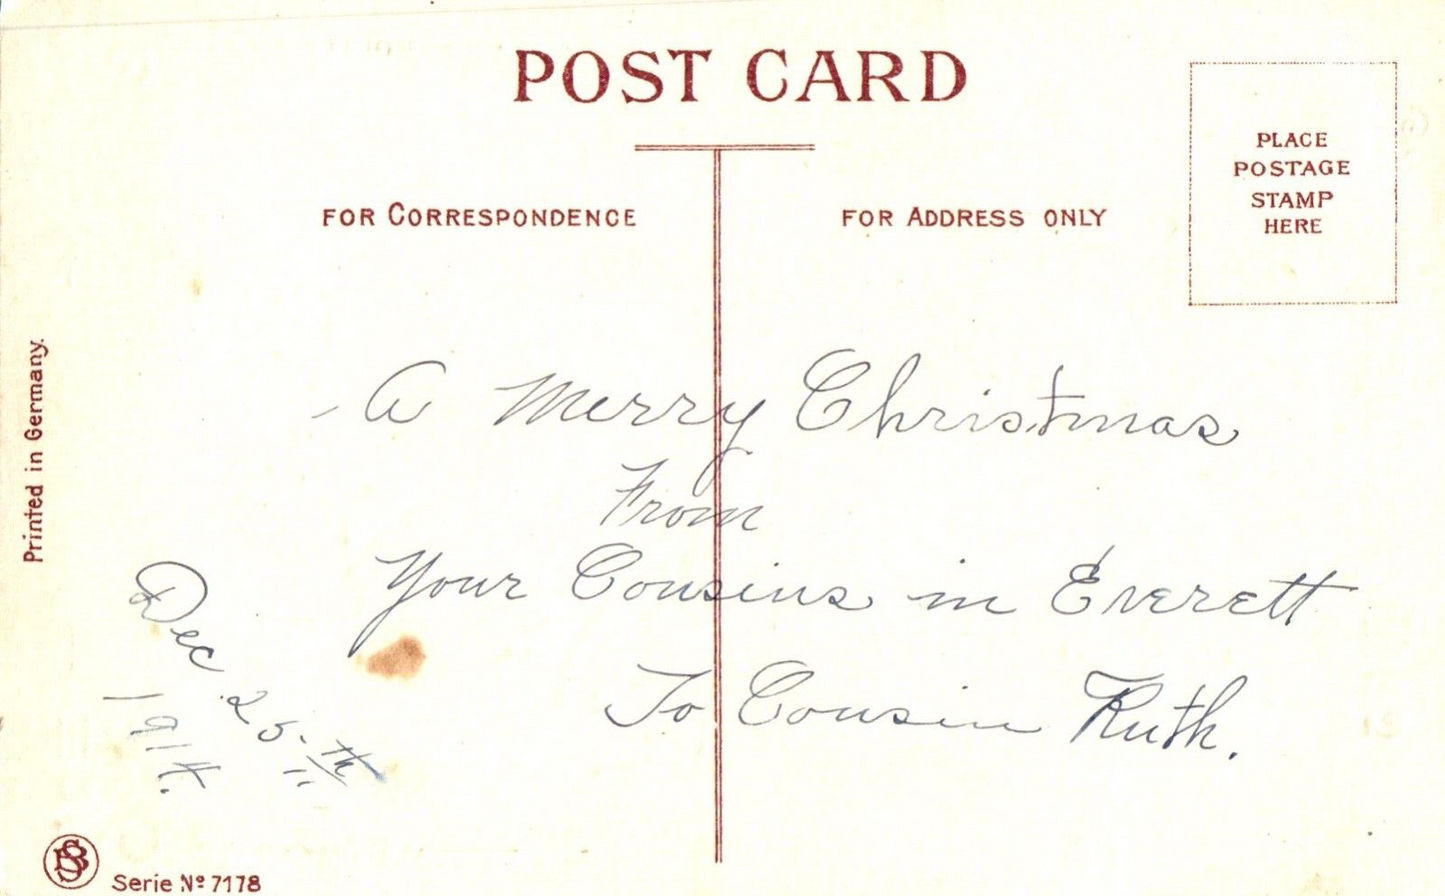 POST CARD
FOR CORRESPONDENCE
FOR ADDRESS ONLY
PLACE
POSTAGE
STAMP
HERE
A Merry Christmas
From
Your Cousins in Everett
To Cousin Ruth.
Dec 25-th
1914.
Printed in Germany.
Serie Nº 7178